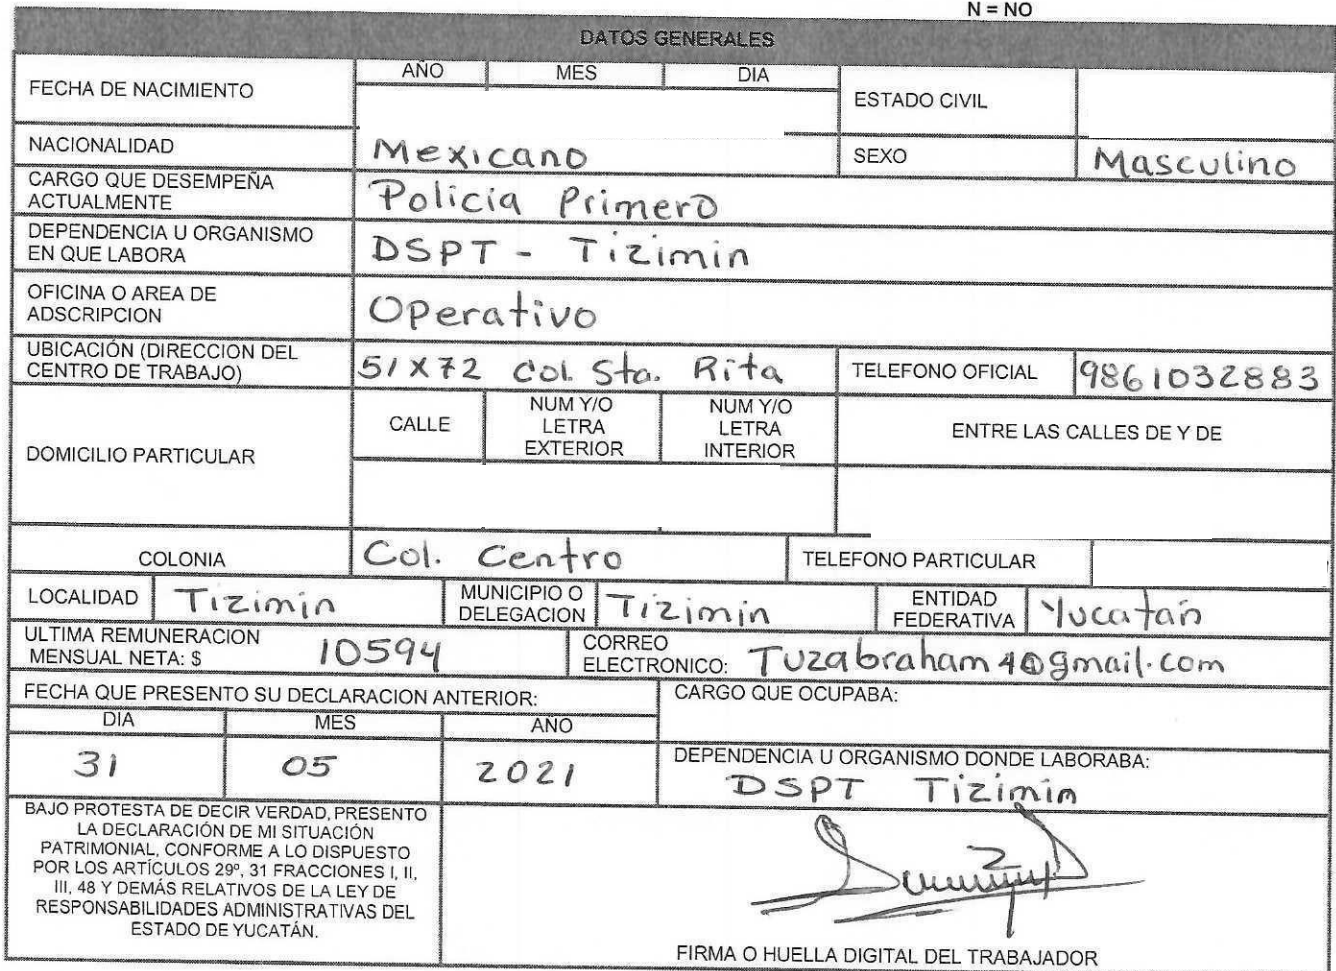 N = NO
DATOS GENERALES
FECHA DE NACIMIENTO
AÑO MES DIA
ESTADO CIVIL
NACIONALIDAD Mexicano SEXO Masculino
CARGO QUE DESEMPEÑA
ACTUALMENTE
Policia Primero
DEPENDENCIA U ORGANISMO
EN QUE LABORA
DSPT - Tizimin
OFICINA O AREA DE
ADSCRIPCION
Operativo
UBICACIÓN (DIRECCION DEL
CENTRO DE TRABAJO)
51 x 72 Col. Sta. Rita
TELEFONO OFICIAL 9861032883
DOMICILIO PARTICULAR
CALLE
NUM Y/O
LETRA
EXTERIOR
NUM Y/O
LETRA
INTERIOR
ENTRE LAS CALLES DE Y DE
COLONIA Col. Centro TELEFONO PARTICULAR
LOCALIDAD Tizimin
MUNICIPIO O
DELEGACION
Tizimin
ENTIDAD
FEDERATIVA
Yucatán
ULTIMA REMUNERACION
MENSUAL NETA: $ 10594
CORREO
ELECTRONICO: Tuzabraham4@gmail.com
FECHA QUE PRESENTO SU DECLARACION ANTERIOR:
DIA MES AÑO
31 05 2021
CARGO QUE OCUPABA:
DEPENDENCIA U ORGANISMO DONDE LABORABA:
DSPT Tizimin
BAJO PROTESTA DE DECIR VERDAD, PRESENTO
LA DECLARACIÓN DE MI SITUACIÓN
PATRIMONIAL, CONFORME A LO DISPUESTO
POR LOS ARTÍCULOS 29º, 31 FRACCIONES I, II,
III, 48 Y DEMÁS RELATIVOS DE LA LEY DE
RESPONSABILIDADES ADMINISTRATIVAS DEL
ESTADO DE YUCATÁN.
FIRMA O HUELLA DIGITAL DEL TRABAJADOR